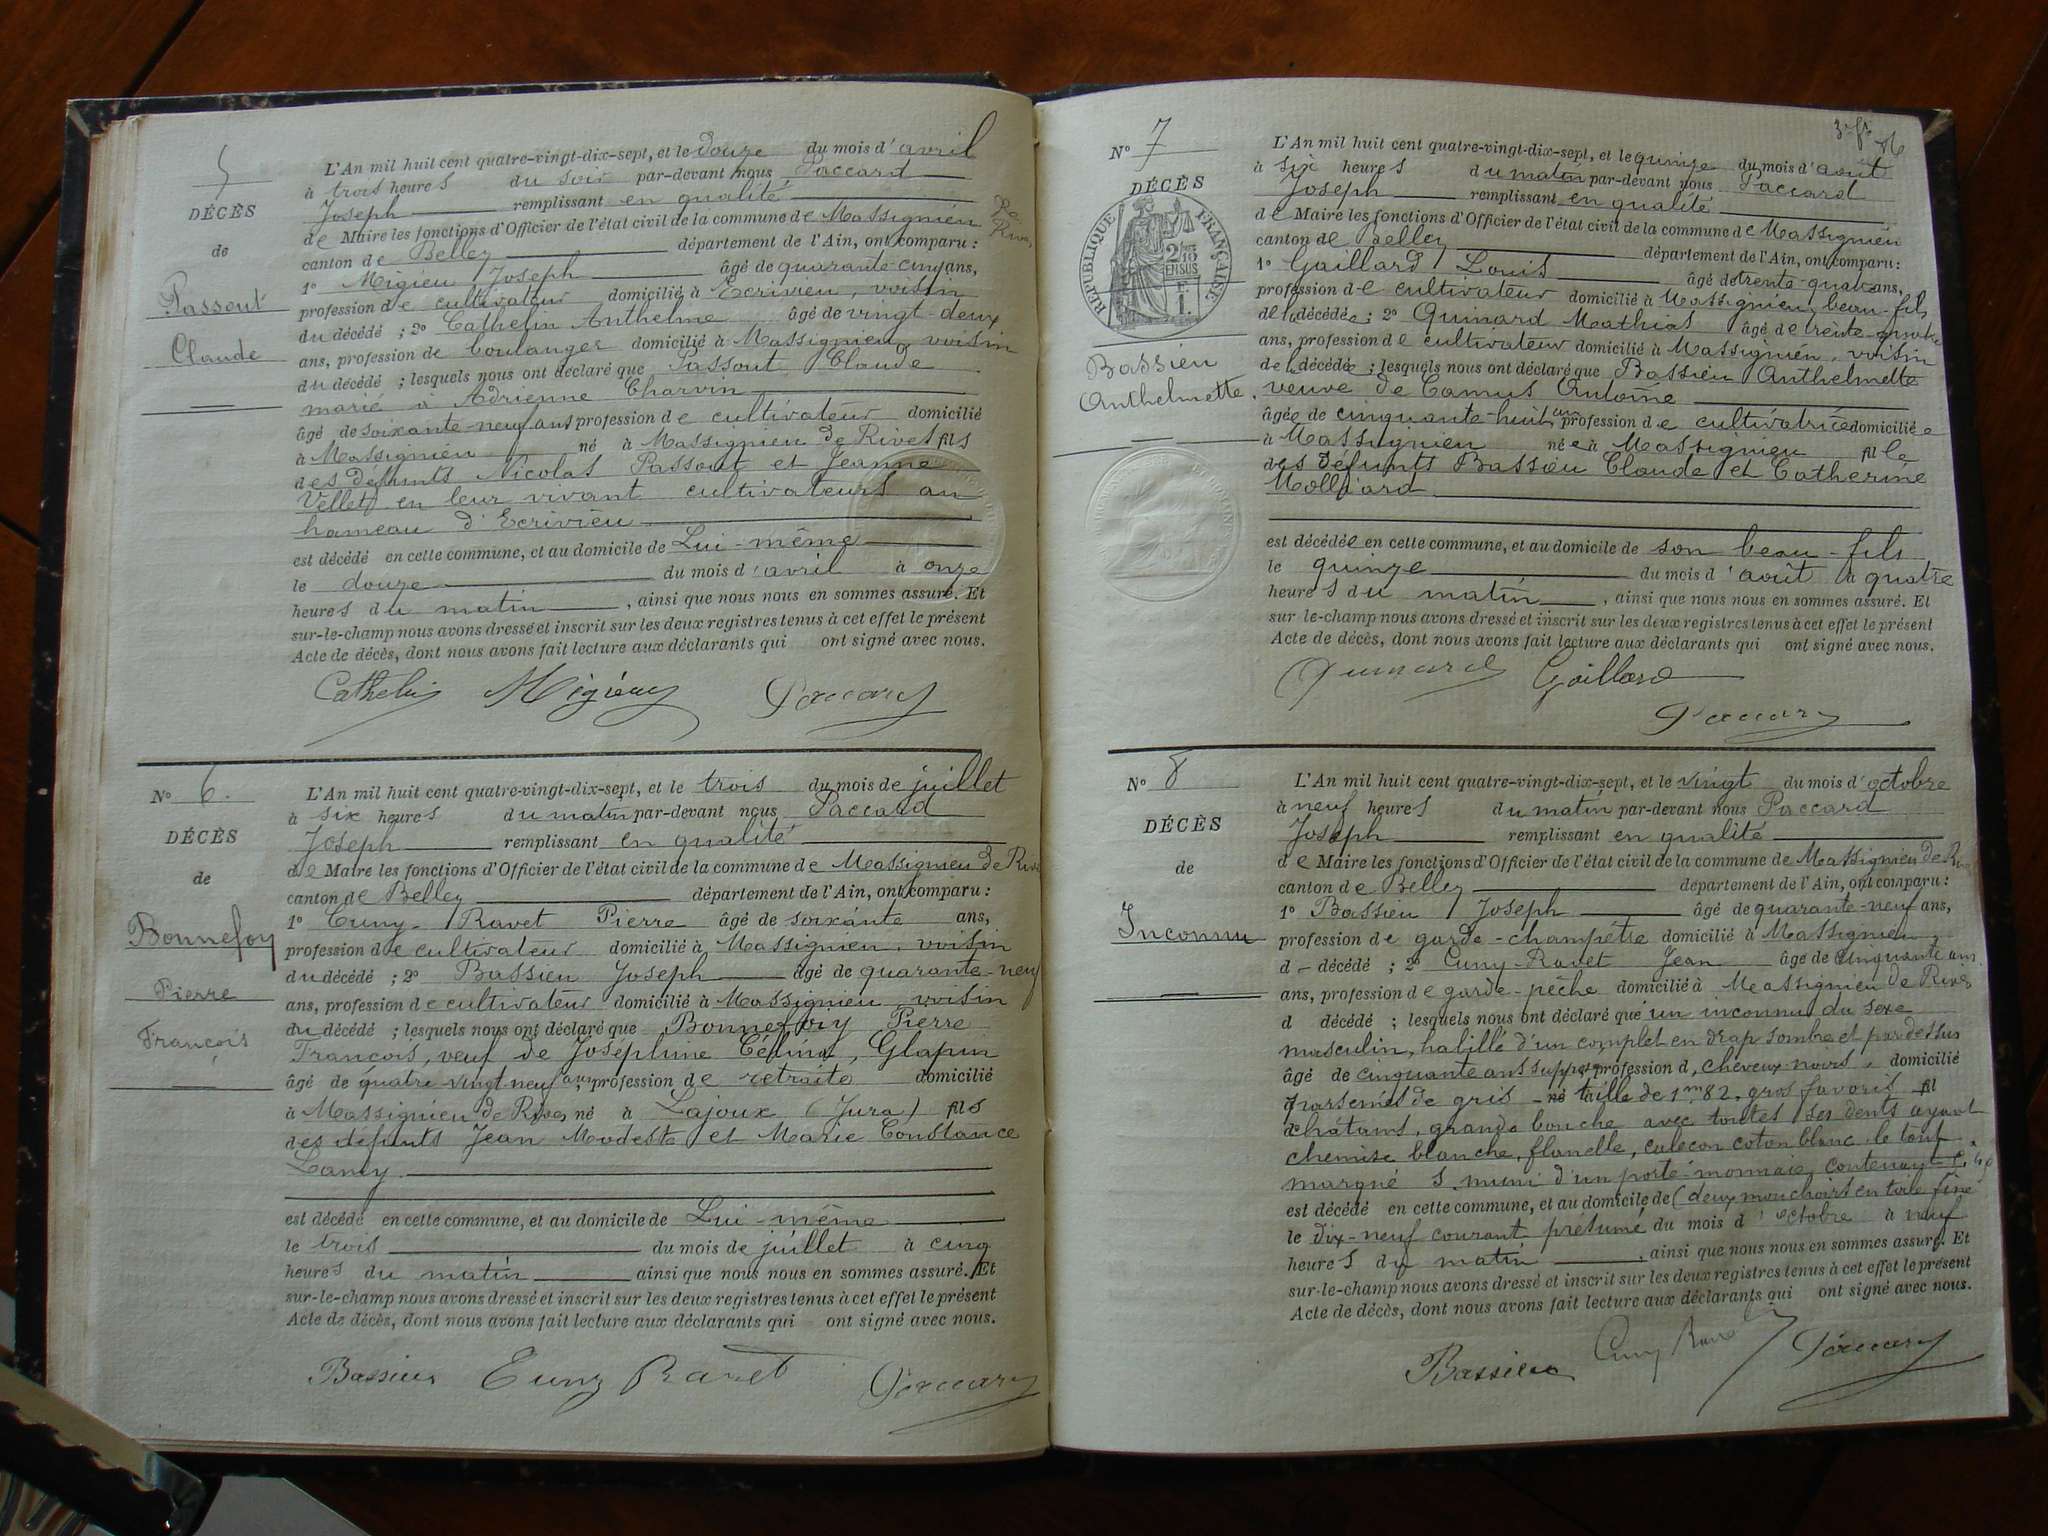 5
DÉCÈS
de
Passout
Claude
L'An mil huit cent quatre-vingt-dix-sept, et le douze du mois d'avril
à trois heures du soir par-devant nous Paccard
Joseph remplissant en qualité
de Maire les fonctions d'Officier de l'état civil de la commune de Massignieu de Rives
canton de Belley département de l'Ain, ont comparu :
1° Migieu Joseph âgé de quarante-cinq ans,
profession de cultivateur domicilié à Ecrivieu, voisin
du décédé ; 2° Cathelin Anthelme âgé de vingt-deux
ans, profession de boulanger domicilié à Massignieu, voisin
du décédé ; lesquels nous ont déclaré que Passout Claude
marié à Adrienne Charvin
âgé de soixante-neuf ans profession de cultivateur domicilié
à Massignieu né à Massignieu de Rives fils
des défunts Nicolas Passout et Jeanne
Vellet en leur vivant cultivateurs au
hameau d'Ecrivieu
est décédé en cette commune, et au domicile de Lui-même
le douze du mois d'avril à onze
heures du matin, ainsi que nous nous en sommes assuré. Et
sur-le-champ nous avons dressé et inscrit sur les deux registres tenus à cet effet le présent
Acte de décès, dont nous avons fait lecture aux déclarants qui ont signé avec nous.
Cathelin Migieu Paccard
N° 6.
DÉCÈS
de
Bonnefoy
Pierre
François
L'An mil huit cent quatre-vingt-dix-sept, et le trois du mois de juillet
à six heures du matin par-devant nous Paccard
Joseph remplissant en qualité
de Maire les fonctions d'Officier de l'état civil de la commune de Massignieu de Rives
canton de Belley département de l'Ain, ont comparu :
1° Cuny-Ravet Pierre âgé de soixante ans,
profession de cultivateur domicilié à Massignieu, voisin
du décédé ; 2° Bassieu Joseph âgé de quarante-neuf
ans, profession de cultivateur domicilié à Massignieu, voisin
du décédé ; lesquels nous ont déclaré que Bonnefoy Pierre
François, veuf de Joséphine Célina, Glapin
âgé de quatre-vingt-neuf ans, profession de retraité domicilié
à Massignieu de Rives né à Lajoux (Jura) fils
des défunts Jean Modeste et Marie Constance
Lancy
est décédé en cette commune, et au domicile de Lui-même
le trois du mois de juillet à cinq
heures du matin ainsi que nous nous en sommes assuré. Et
sur-le-champ nous avons dressé et inscrit sur les deux registres tenus à cet effet le présent
Acte de décès, dont nous avons fait lecture aux déclarants qui ont signé avec nous.
Bassieu Cuny Ravet Paccard
N° 7
DÉCÈS
RÉPUBLIQUE FRANÇAISE
2/10 EN SUS
Bassieu
Anthelmette.
L'An mil huit cent quatre-vingt-dix-sept, et le quinze du mois d'août
à six heures du matin par-devant nous Paccard
Joseph remplissant en qualité
de Maire les fonctions d'Officier de l'état civil de la commune de Massignieu
canton de Belley département de l'Ain, ont comparu :
1° Gaillard Louis âgé de trente-quatre ans,
profession de cultivateur domicilié à Massignieu, beau-fils
de la décédée ; 2° Quinard Mathias âgé de trente-quatre
ans, profession de cultivateur domicilié à Massignieu, voisin
de la décédée ; lesquels nous ont déclaré que Bassieu Anthelmette
veuve de Camus Antoine
âgée de cinquante-huit ans profession de cultivatrice domiciliée
à Massignieu née à Massignieu fille
des défunts Bassieu Claude et Catherine
Mollard
est décédée en cette commune, et au domicile de son beau-fils
le quinze du mois d'août à quatre
heures du matin, ainsi que nous nous en sommes assuré. Et
sur-le-champ nous avons dressé et inscrit sur les deux registres tenus à cet effet le présent
Acte de décès, dont nous avons fait lecture aux déclarants qui ont signé avec nous.
Quinard Gaillard
Paccard
N° 8
DÉCÈS
de
Inconnu
L'An mil huit cent quatre-vingt-dix-sept, et le vingt du mois d'octobre
à neuf heures du matin par-devant nous Paccard
Joseph remplissant en qualité
de Maire les fonctions d'Officier de l'état civil de la commune de Massignieu de Rives
canton de Belley département de l'Ain, ont comparu :
1° Bassieu Joseph âgé de quarante-neuf ans,
profession de garde-champêtre domicilié à Massignieu
d décédé ; 2° Cuny-Ravet Jean âgé de cinquante ans
ans, profession de garde-pêche domicilié à Massignieu de Rives
d décédé ; lesquels nous ont déclaré que un inconnu du sexe
masculin, habillé d'un complet en drap sombre et pardessus
âgé de cinquante ans supposé profession d, cheveux noirs, domicilié
parsemés de gris - né taille de 1m 82, gros favoris fil
châtains, grande bouche avec toutes ses dents ayant
chemise blanche, flanelle, caleçon coton blanc, le tout
marqué S. muni d'un porte-monnaie, contenant
est décédé en cette commune, et au domicile de (deux mouchoirs en toile fine
le dix-neuf courant présumé du mois d'octobre à neuf
heures du matin, ainsi que nous nous en sommes assuré. Et
sur-le-champ nous avons dressé et inscrit sur les deux registres tenus à cet effet le présent
Acte de décès, dont nous avons fait lecture aux déclarants qui ont signé avec nous.
Bassieu Cuny Ravet Paccard